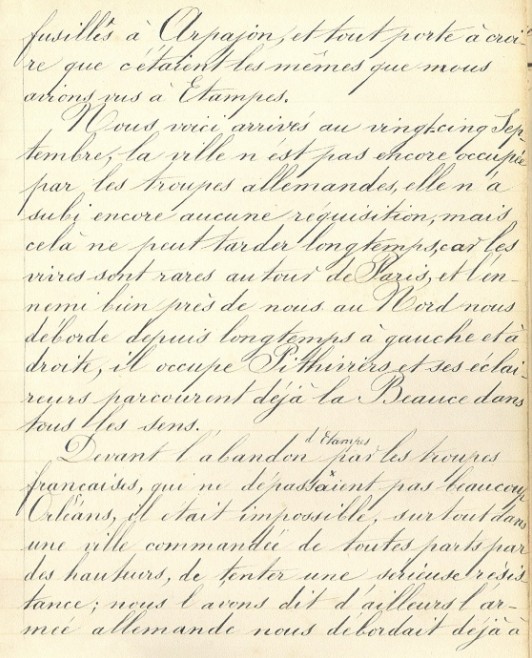 fusillés à Arpajon, et tout porte à croi
re que c'étaient les mêmes que nous
avions vus à Etampes.
Nous voici arrivés au vingt-cinq Sep-
tembre, la ville n'est pas encore occupée
par les troupes allemandes, elle n'a
subi encore aucune réquisition, mais
celà ne peut tarder longtemps, car les
vivres sont rares autour de Paris, et l'en-
nemi bien près de nous au Nord nous
déborde depuis longtemps à gauche et à
droite, il occupe Pithiviers et ses éclai
reurs parcourent déjà la Beauce dans
tous les sens.
Devant l'abandon d'Etampes par les troupes
françaises, qui ne dépassaient pas beaucoup
Orléans, il était impossible, surtout dans
une ville commandée de toutes parts par
des hauteurs, de tenter une sérieuse résis
tance; nous l'avons dit d'ailleurs l'ar-
mée allemande nous débordait déjà à